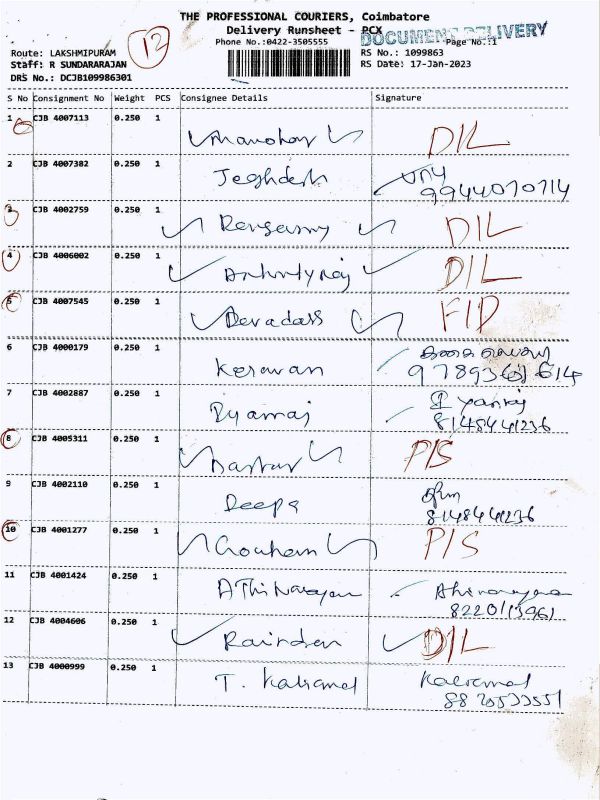 THE PROFESSIONAL COURIERS, Coimbatore
Delivery Runsheet - PCX
DOCUMENT DELIVERY
12
Phone No.:0422-3505555
Page No.:1
Route: LAKSHMIPURAM
RS No.: 1099863
Staff: R SUNDARARAJAN
RS Date: 17-Jan-2023
DRS No.: DCJB109986301
S No Consignment No Weight PCS Consignee Details Signature
1 CJB 4007113 0.250 1
Manohar D/L
2 CJB 4007382 0.250 1
Jeghdesh
9944070714
3 CJB 4002759 0.250 1
Rengasamy D/L
4 CJB 4006002 0.250 1
D/L
5 CJB 4007545 0.250 1
Devadass F/D
6 CJB 4000179 0.250 1
Kesavan
7 CJB 4002887 0.250 1
8148441236
8 CJB 4005311 0.250 1
P/S
9 CJB 4002110 0.250 1
Deepa
8148441236
10 CJB 4001277 0.250 1
Gowtham P/S
11 CJB 4001424 0.250 1
AThiNarayan Athinarayanan
8220113961
12 CJB 4004606 0.250 1
D/L
13 CJB 4000999 0.250 1
T. Kaliramel Kaliramel